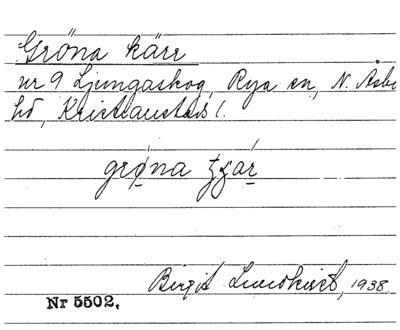 Gröna kärr
nr 9 Ljungaskog, Rya sn, N. Åsbo
hd, Kristianstads l.
grøna
Birgit Lundkvist, 1938.
Nr 5502.